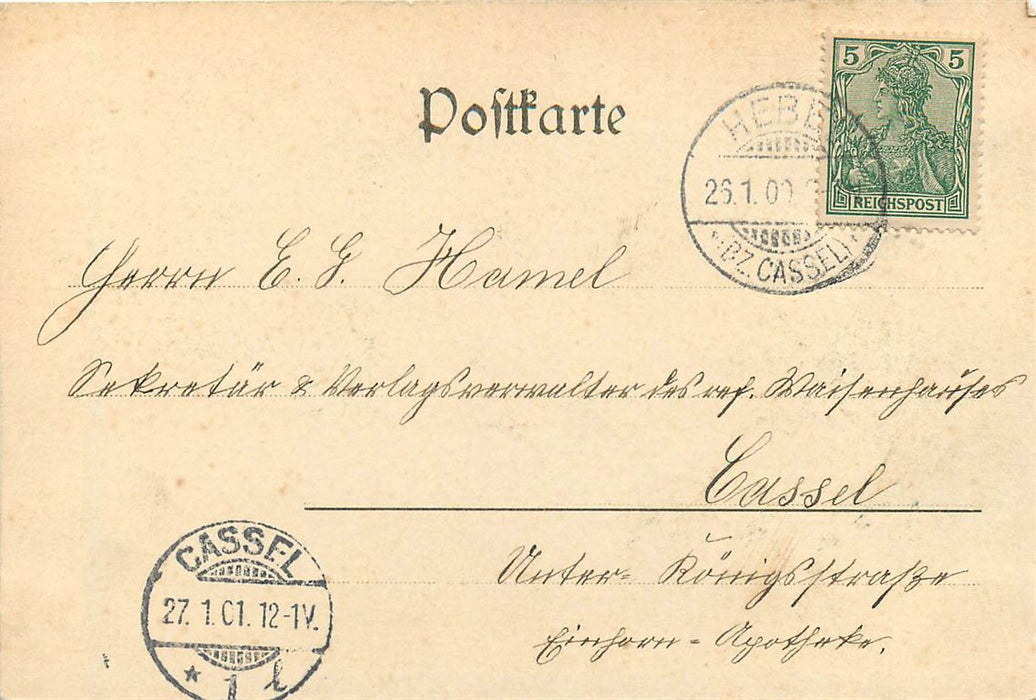 5 5
REICHSPOST
Postkarte
HEBE
26.1.0
BZ. CASSEL
Herrn E. G. Hamel
Sekretär & Verlagsverwalter des ref. Waisenhauses
Cassel
Unter-Königsstraße
Einhorn-Apotheke.
CASSEL
27. 1. 01. 12-1V.
* 1